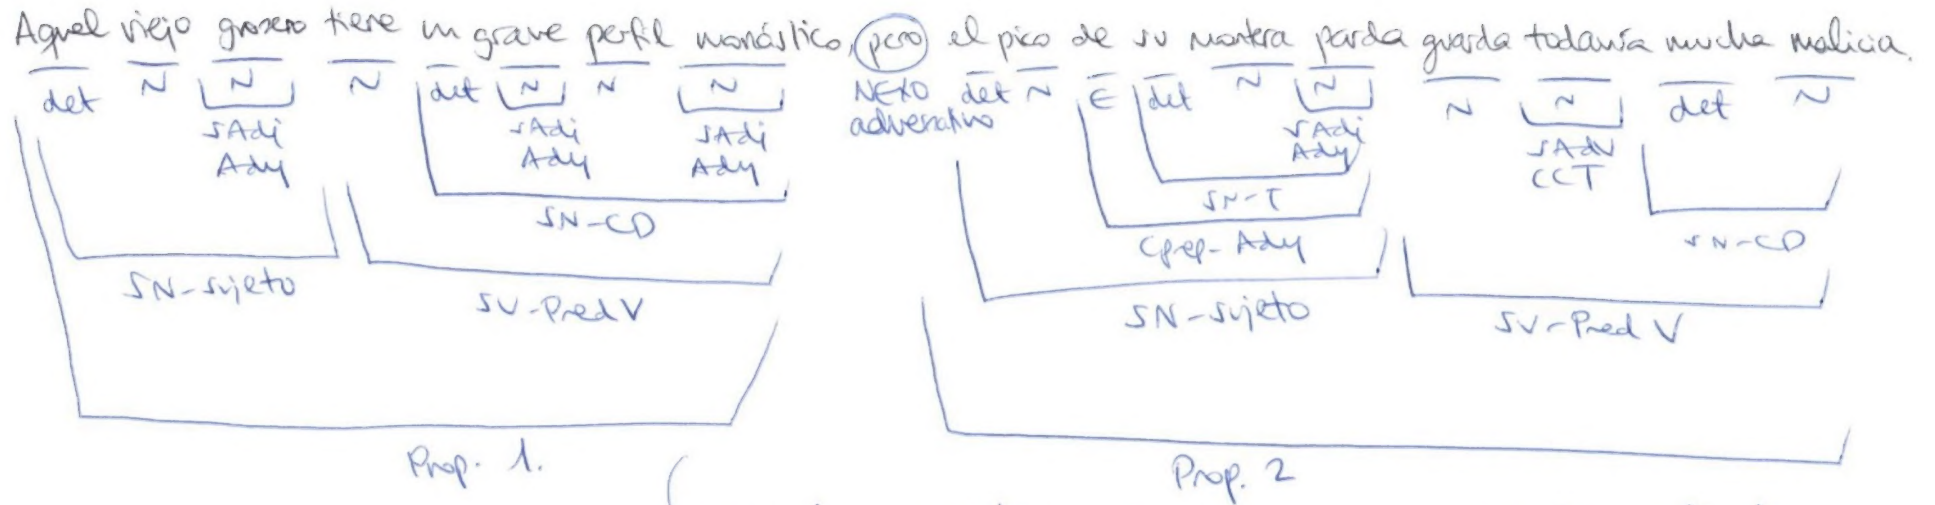 Aquel viejo grosero tiene un grave perfil monástico, pero el pico de su montera parda guarda todavía mucha malicia.
det N N N det N N N NEXO det N E det N N N N det N
adversativo
SAdj SAdj SAdj SAdj SAdv
Ady Ady Ady Ady CCT
SN-CD SN-T
Cprep-Ady SN-CD
SN-sujeto SV-Pred V SN-sujeto SV-Pred V
Prop. 1. Prop. 2